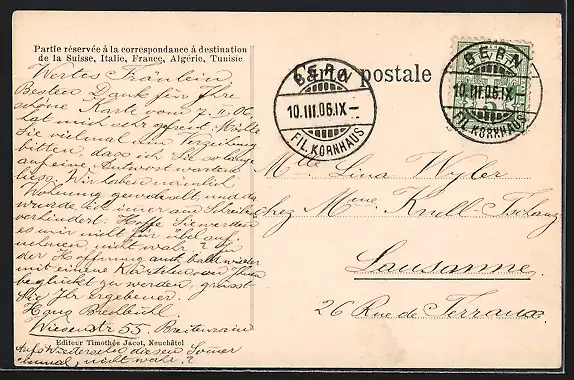 Partie réservée à la correspondance à destination
de la Suisse, Italie, France, Algérie, Tunisie
Carte postale
BERN
10.III.06.IX–
FIL. KORNHAUS
BERN
10.III.06.IX–
FIL. KORNHAUS
5
Wertes Fräulein
Besten Dank für Ihre
schöne Karte vom 7. II. 06,
hat mich sehr gefreut. Wollte
Sie vielemal um Verzeihung
bitten, dass ich Sie so lange
auf eine Antwort warten
liess. Wir haben nämlich
Wohnung gewechselt und da
wurde ich immer am Schreiben
verhindert. Hoffe Sie werden
es mir nicht für übel auf-
nehmen, nicht wahr? In
der Hoffnung auch bald wieder
mit einem Kärtchen von Ihnen
beglückt zu werden, grüsst
Sie Ihr Ergebener
Hans
Wiesenstr 55. Breitenrain
Editeur Timothée Jacot, Neuchâtel
Aufs Wiedersehn diesen Sommer
einmal, nicht wahr?
Mlle Lina Wyler
chez Mme Knell-Tschanz
Lausanne.
26 Rue de Terraux.